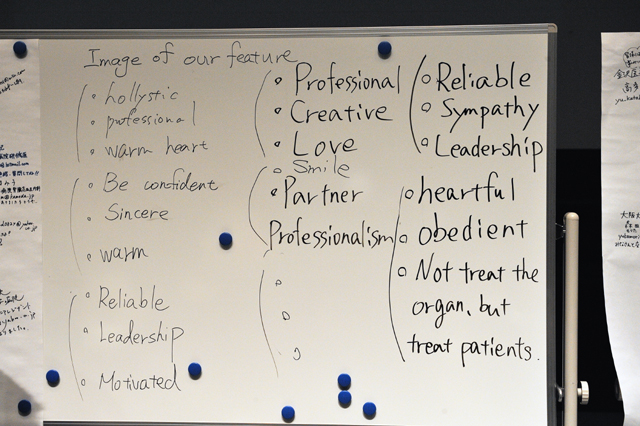 Image of our feature
hollystic
professional
warm heart
Be confident
Sincere
warm
Reliable
Leadership
Motivated
Professional
Creative
Love
Smile
Partner
Professionalism
Reliable
Sympathy
Leadership
heartful
obedient
Not treat the
organ, but
treat patients.